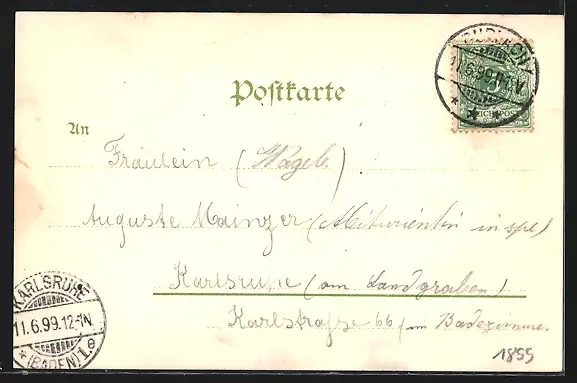 DURLACH
11.6.99.11-12.V
REICHSPOST
Postkarte
An
Fräulein (Wageb.)
Auguste Mainzer (Abiturientin in spe)
Karlsruhe (am Landgraben)
Karlstrasse 66 (im Badezimmer
KARLSRUHE
11.6.99.12-1N.
*(BADEN)1.e
1899